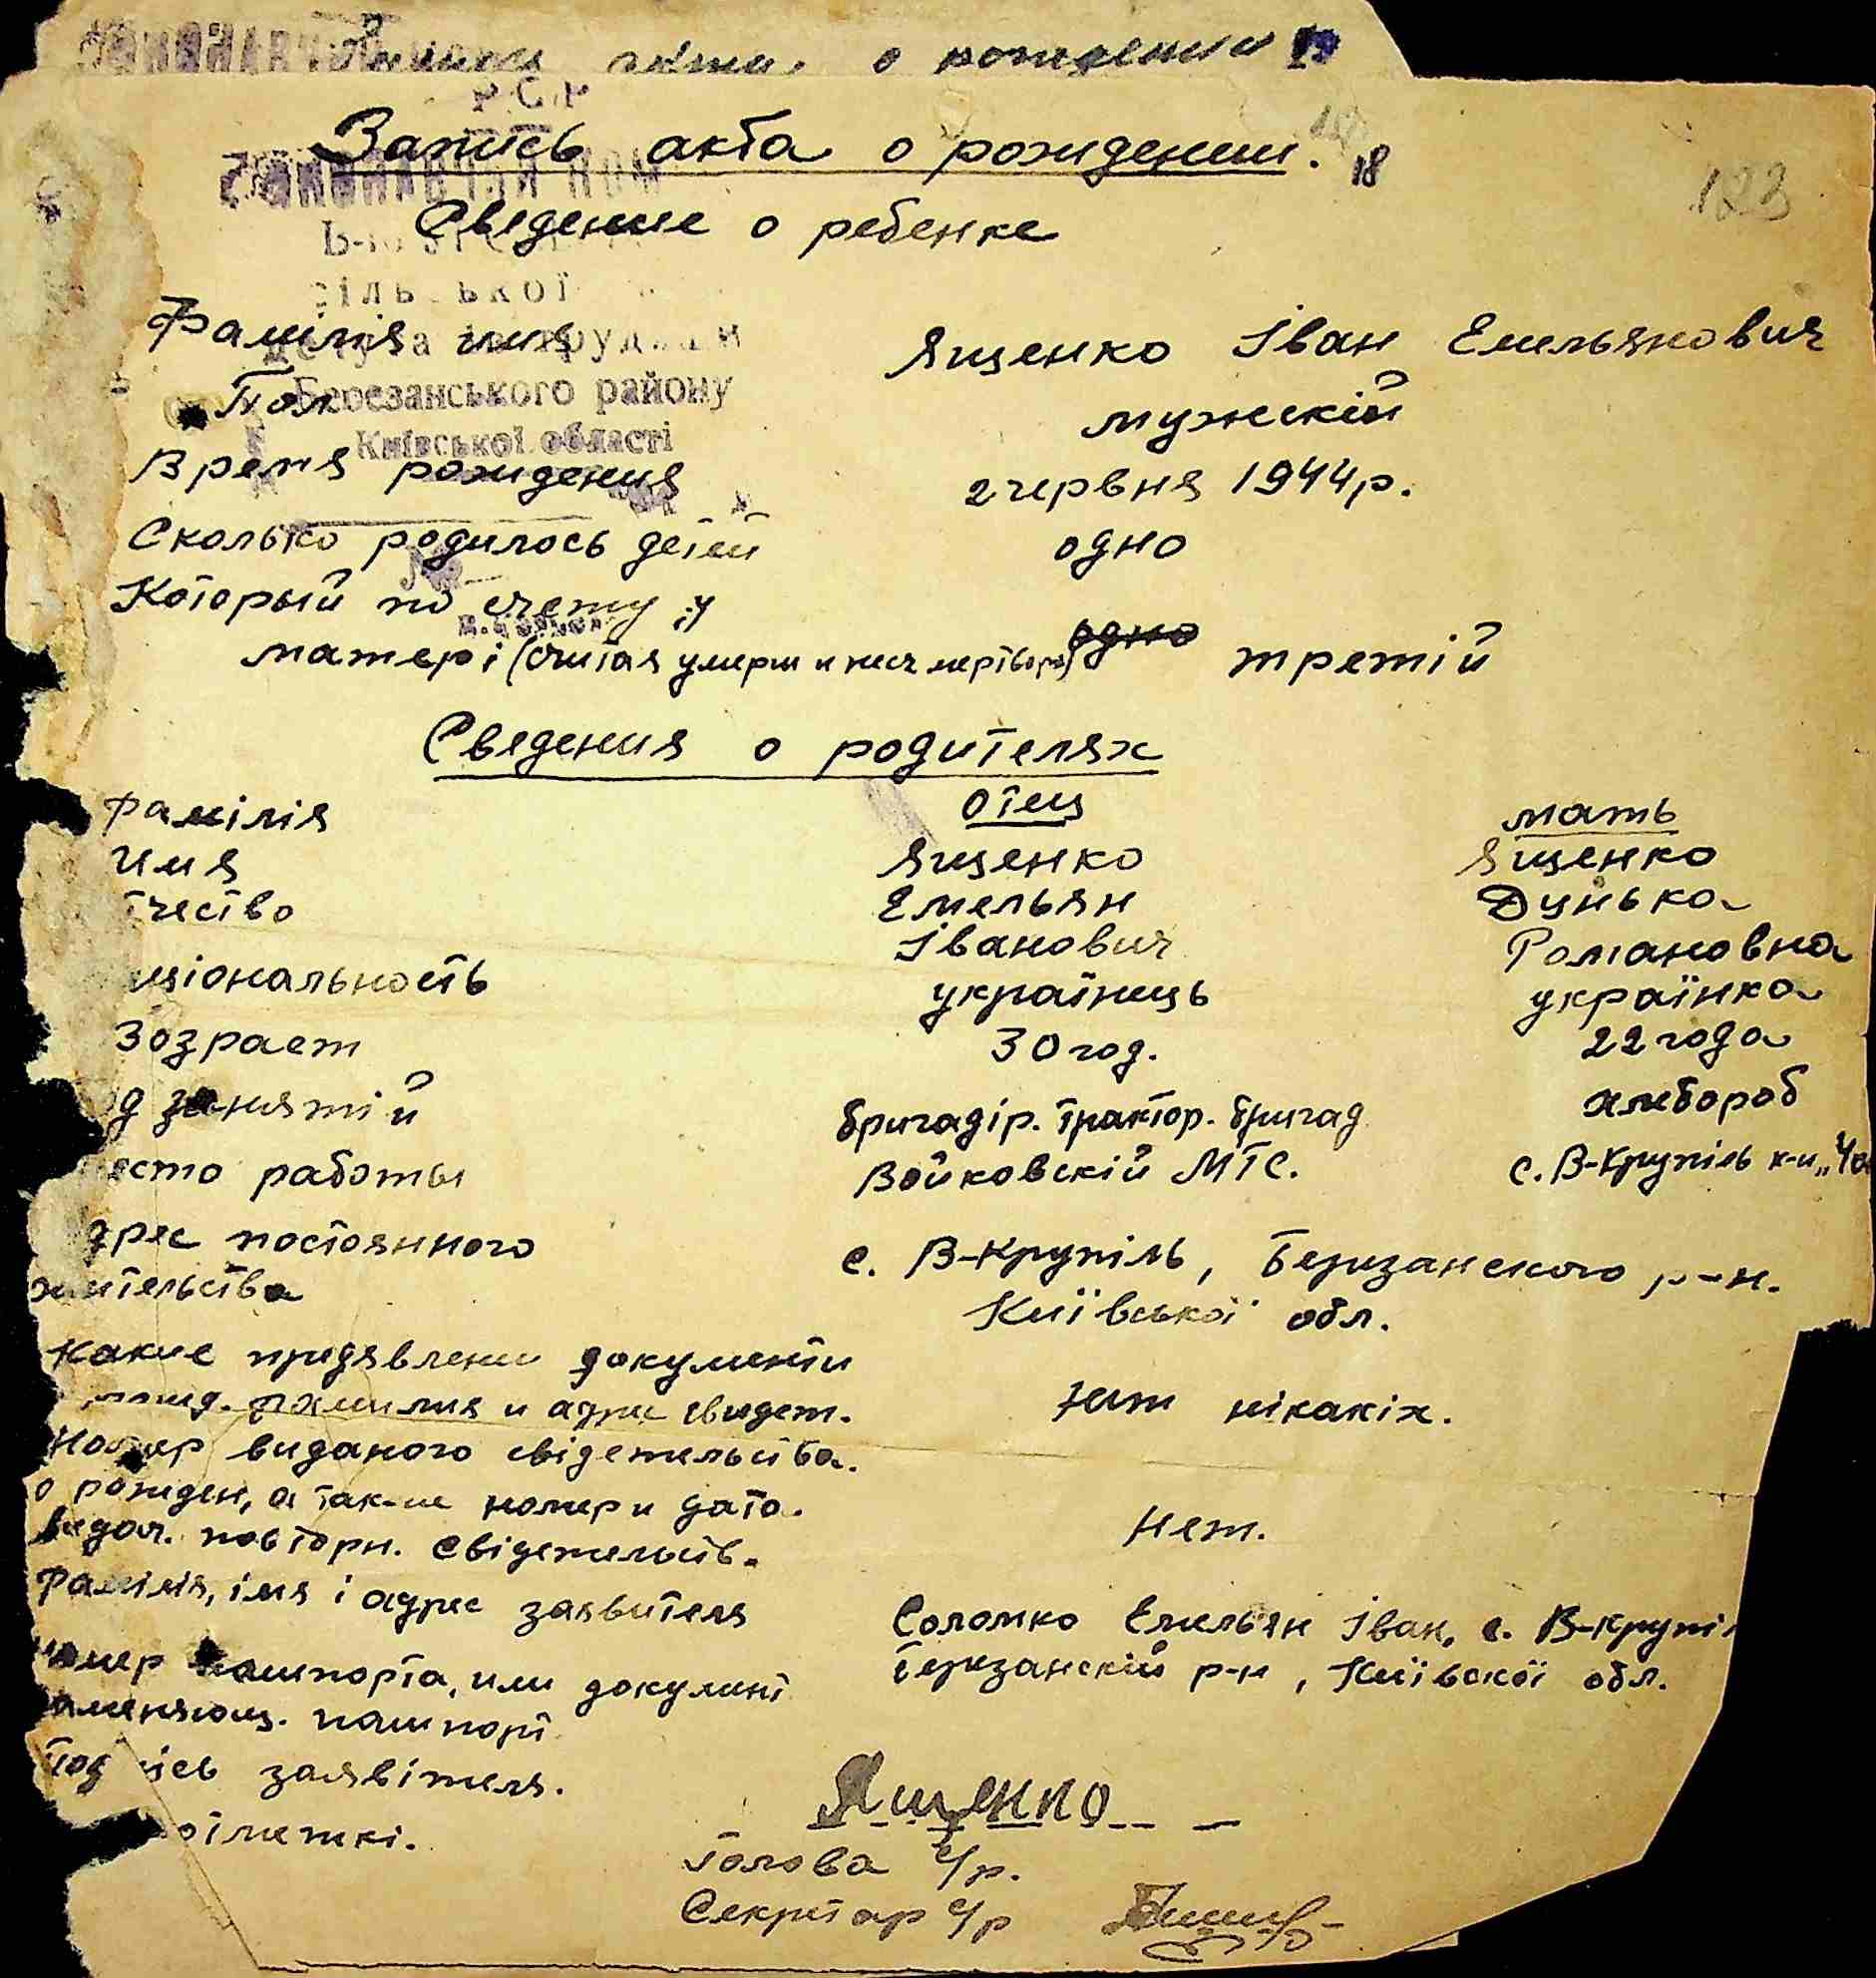 о рождении 19
РСР
Запись акта о рождении. 18
123
Сведение о ребенке
сільської
Фамілія имя Ященко Іван Емельянович
Березанського району
Пол мужскій
Київської області
Время рождения 2 червня 1944р.
Сколько родилось детей одно
Который по счету у
матері (считая умерш и несч мертвор) одно третій
Сведения о родителях
отец мать
Фамілія Ященко Ященко
Имя Емельян Дунька
тчество Іванович Романовна
ціональность українець українка
Возраст 30 год. 22 года
д занятій бригадір. трактор. бригад хлебороб
есто работы Войковскій МТС. с. В-Крупіль к-п „Ча
дрес постоянного с. В-Крупіль, Березанского р-н.
жительства Київської обл.
Какие предявлени документи
фамилия и адрес свидет. Нет нікакіх.
Номер виданого свідетельства.
о рожден, а так-же номер и дата. Нет.
видач. повторн. Свідетельств.
Фамілія, імя і адрес заявителя Соломко Емельян Іван. с. В-Крупіл
Березанскій р-н, Київскої обл.
номер пашпорта, или документ
заменяющ. пашпорт
Подпісь заявітеля. Ященко
отметкі.
Голова с/р.
Секретар с/р